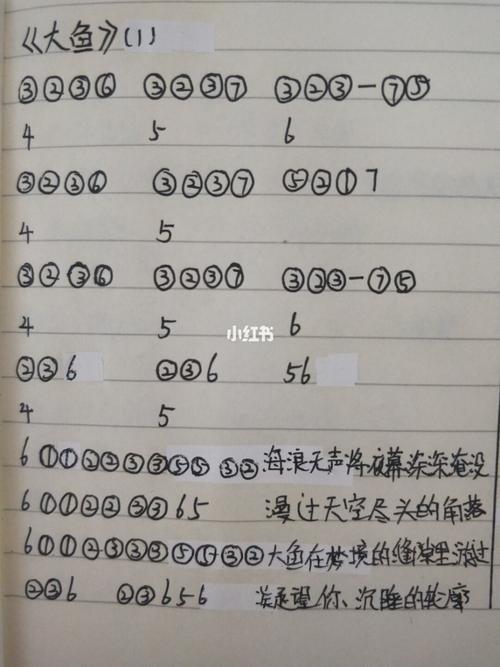 《大鱼》(1)
③②③⑥ ③②③⑦ ③②③-⑦⑤
4 5 6
③②③⑥ ③②③⑦ ⑤②①7
4 5
③②③⑥ ③②③⑦ ③②③-⑦⑤
4 5 6
小红书
②③6 ②③6 56
4 5
6①①②②③③⑤⑤③② 海浪无声将夜幕深深淹没
6①①②②③③65 漫过天空尽头的角落
6①①②③③③⑤⑤③② 大鱼在梦境的缝隙里游过
②③6 ②③656 凝望你、沉睡的轮廓